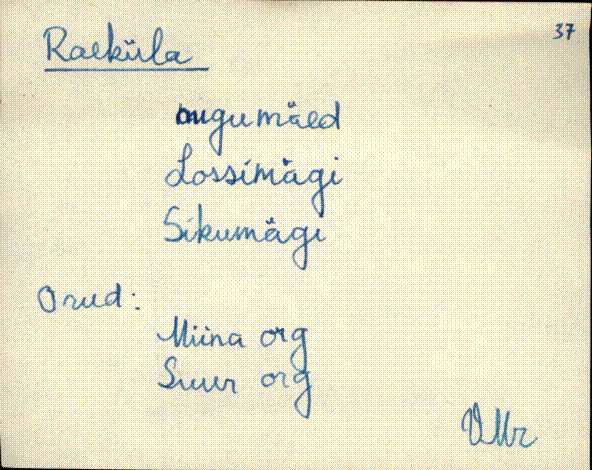 37
Raeküla
augumäed
Lossimägi
Sikumägi
Orud:
Miina org
Suur org
VMr